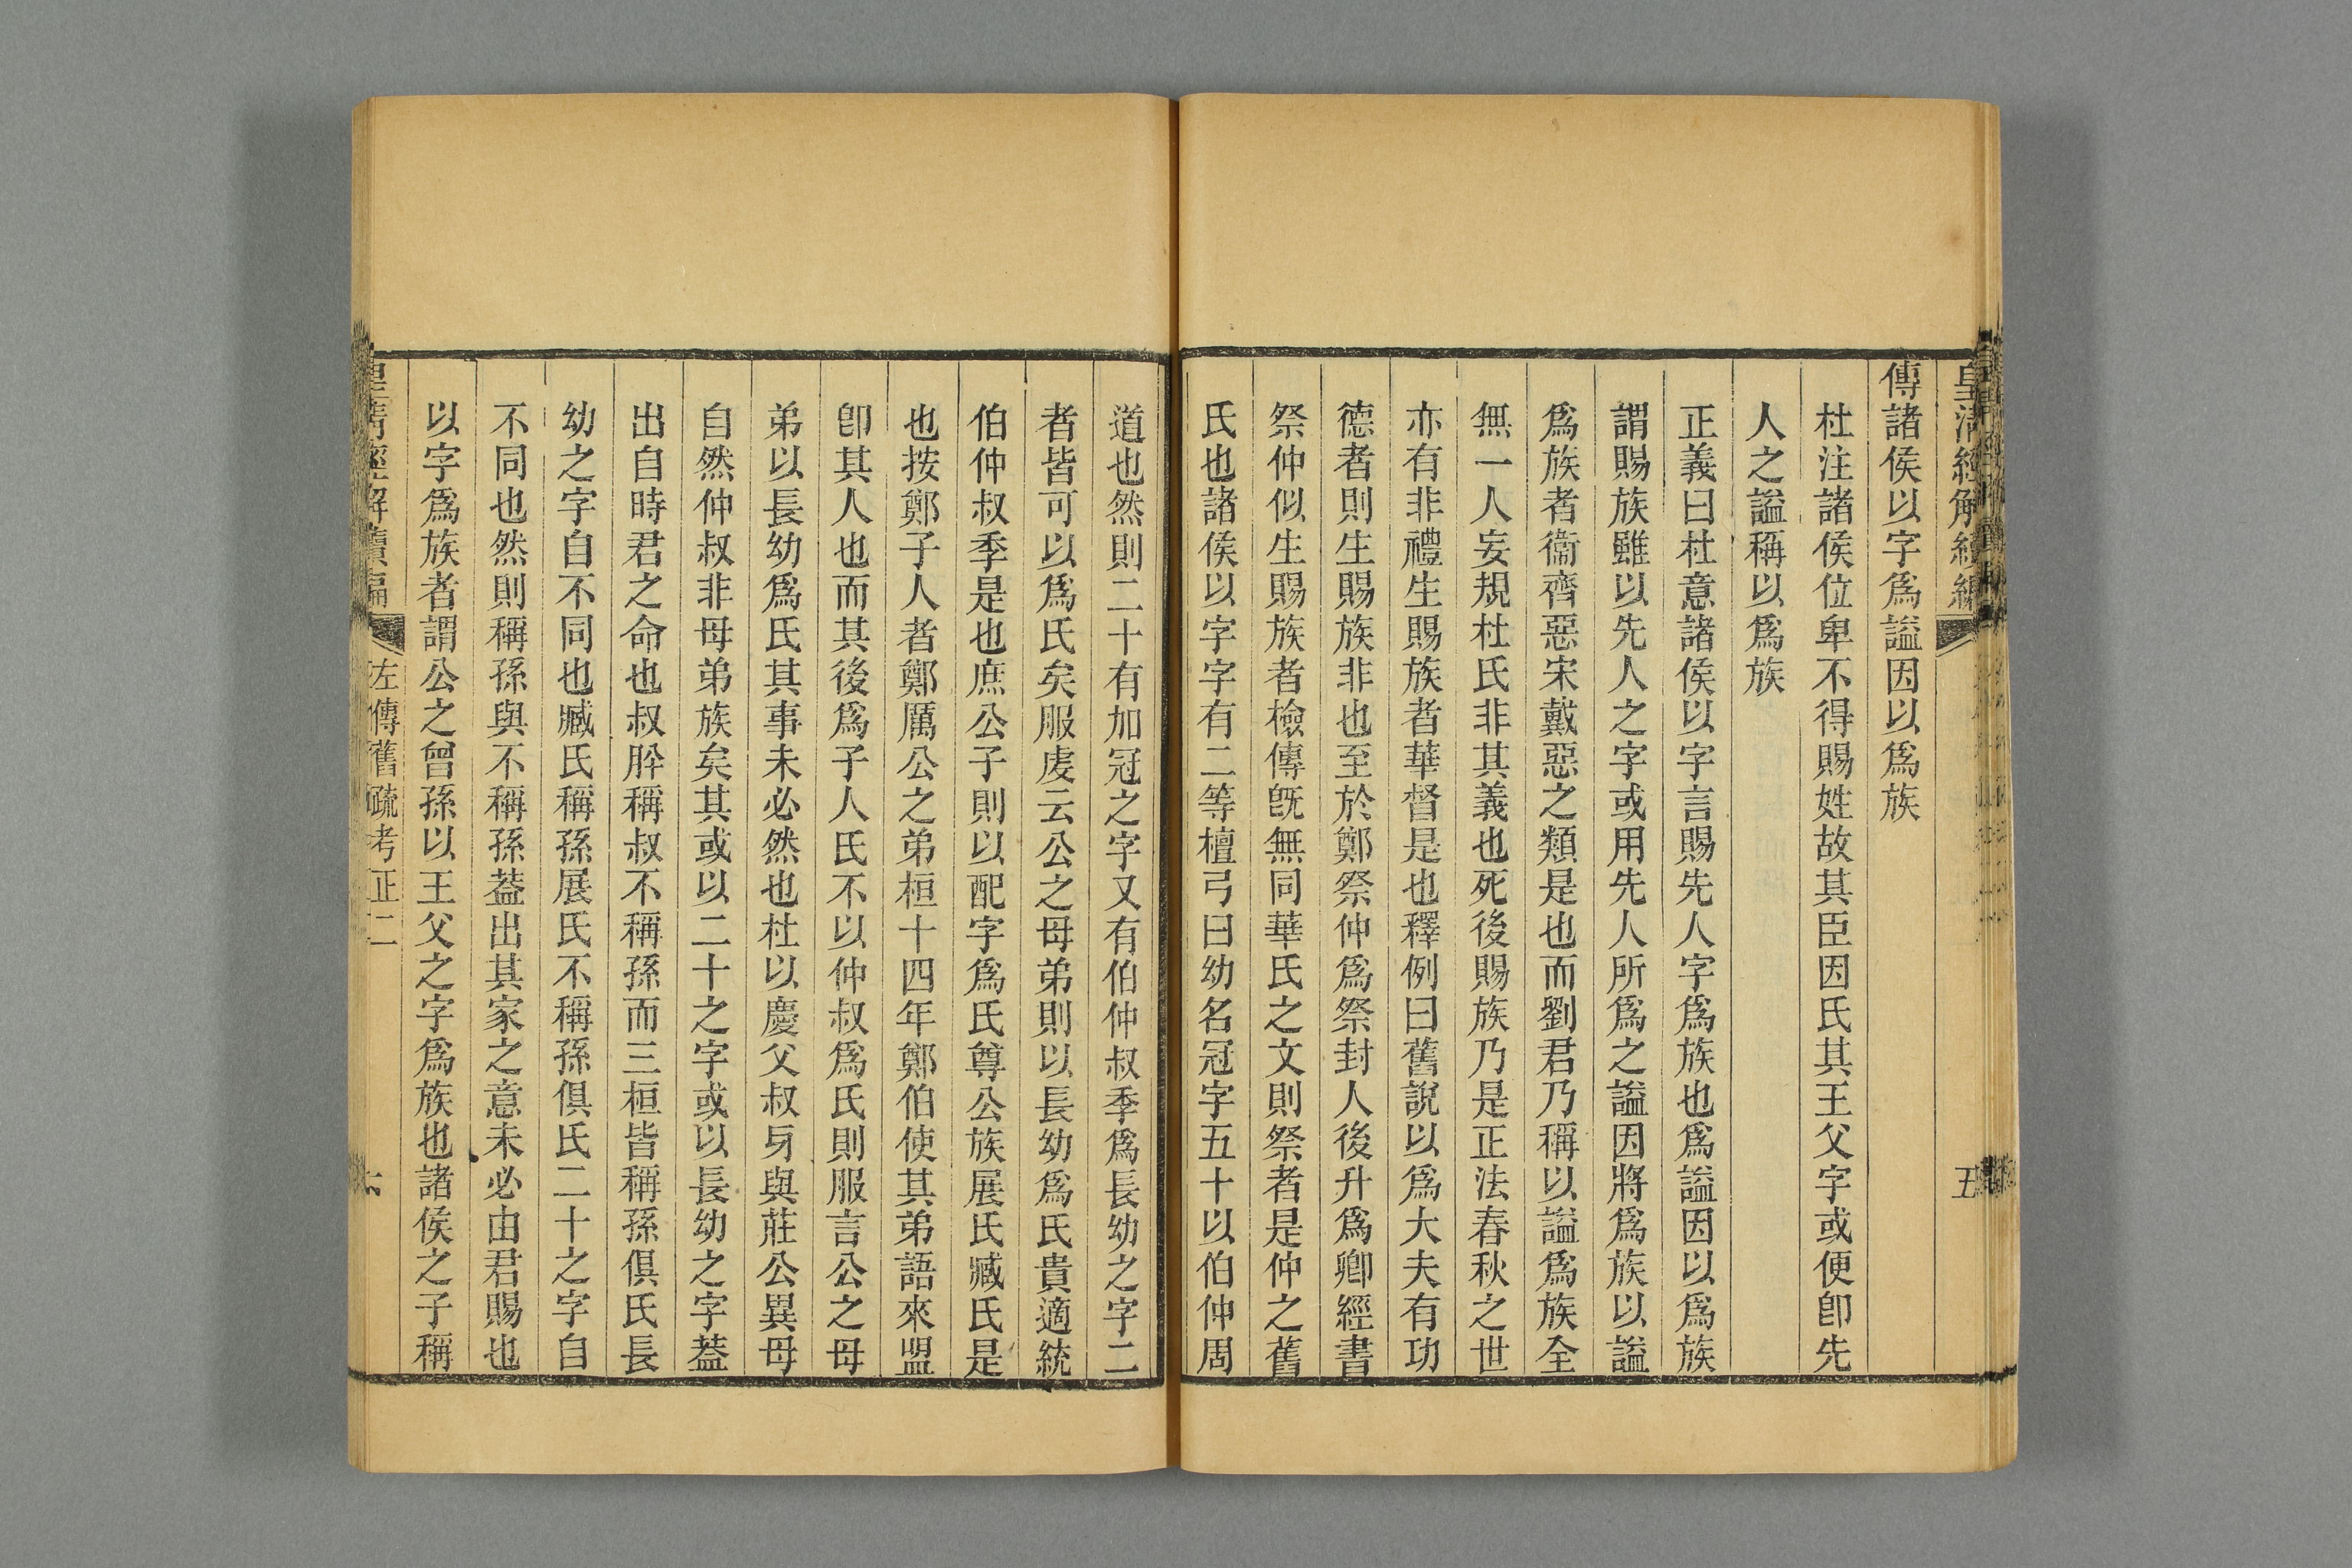 皇清經解續編
五
傳諸侯以字爲謚因以爲族
杜注諸侯位卑不得賜姓故其臣因氏其王父字或便卽先
人之謚稱以爲族
正義曰杜意諸侯以字言賜先人字爲族也爲謚因以爲族
謂賜族雖以先人之字或用先人所爲之謚因將爲族以謚
爲族者衞齊惡宋戴惡之類是也而劉君乃稱以謚爲族全
無一人妄規杜氏非其義也死後賜族乃是正法春秋之世
亦有非禮生賜族者華督是也釋例曰舊說以爲大夫有功
德者則生賜族非也至於鄭祭仲爲祭封人後升爲卿經書
祭仲似生賜族者檢傳旣無同華氏之文則祭者是仲之舊
氏也諸侯以字字有二等檀弓曰幼名冠字五十以伯仲周
道也然則二十有加冠之字又有伯仲叔季爲長幼之字二
者皆可以爲氏矣服虔云公之母弟則以長幼爲氏貴適統
伯仲叔季是也庶公子則以配字爲氏尊公族展氏臧氏是
也按鄭子人者鄭厲公之弟桓十四年鄭伯使其弟語來盟
卽其人也而其後爲子人氏不以仲叔爲氏則服言公之母
弟以長幼爲氏其事未必然也杜以慶父叔牙與莊公異母
自然仲叔非母弟族矣其或以二十之字或以長幼之字蓋
出自時君之命也叔肸稱叔不稱孫而三桓皆稱孫俱氏長
幼之字自不同也臧氏稱孫展氏不稱孫俱氏二十之字自
不同也然則稱孫與不稱孫蓋出其家之意未必由君賜也
以字爲族者謂公之曾孫以王父之字爲族也諸侯之子稱
皇清經解續編
左傳舊疏考正二
六